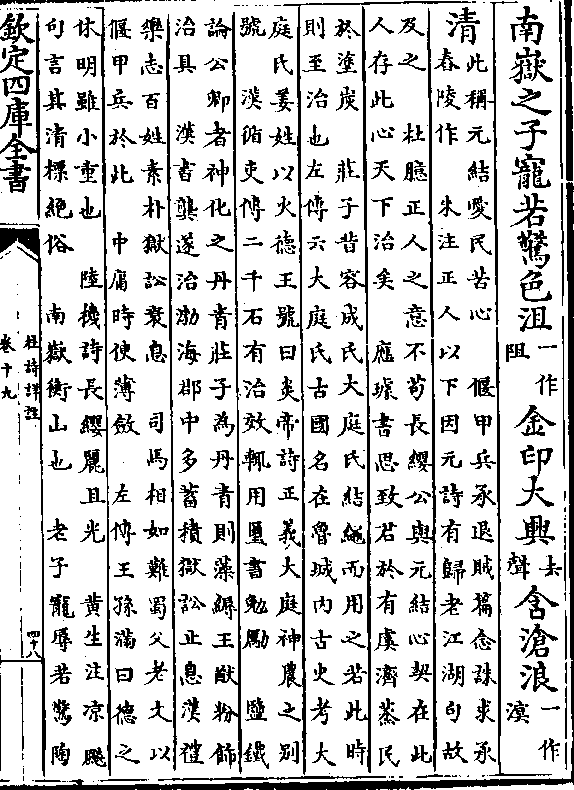 南嶽之子寵若驚色沮一作阻金印大興去聲含滄浪一作溟
清此稱元結愛民苦心 偃甲兵承退賊篇念誅求承
舂陵作 朱注正人以下因元詩有歸老江湖句故
及之 杜臆正人之意不苟長纓公與元結心契在此
人存此心天下治矣 應璩書思致君於有虞濟蒸民
於塗炭 莊子昔容成氏大庭氏結繩而用之若此時
則至治也左傳云大庭氏古國名在魯城内古史考大
庭氏姜姓以火德王號曰炎帝詩正義大庭神農之別
號 漢循吏傳二千石有治效輒用璽書勉勵 鹽鐵
論公卿者神化之丹青莊子為丹青則藻縟王猷粉飾
治具 漢書龔遂治渤海郡中多蓄積獄訟止息漢禮
樂志百姓素朴獄訟衰息 司馬相如難蜀父老文以
偃甲兵於此 中庸時使薄斂 左傳王孫滿曰德之
休明雖小重也 陸機詩長纓麗且光 黃生注凉飇
句言其清標絶俗 南嶽衡山也 老子寵辱若驚陶
欽定四庫全書
杜詩詳註
卷十九
四十八